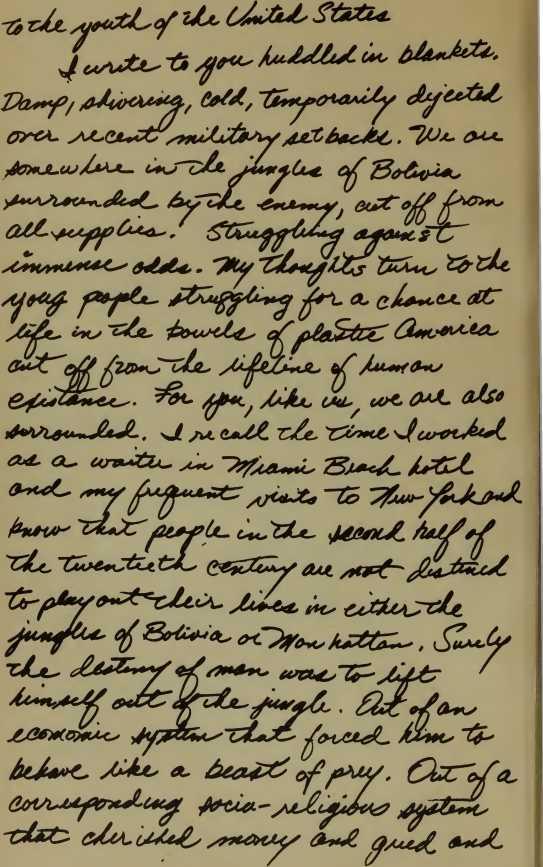 to the youth of the United States
I write to you huddled in blankets.
Damp, shivering, cold, temporarily dejected
over recent military setbacks. We are
somewhere in the jungles of Bolivia
surrounded by the enemy, cut off from
all supplies. Struggling against
immense odds. My thoughts turn to the
youg pople struggling for a chance at
life in the bowels of plastic America
cut off from the lifeline of human
existance. For you, like us, we are also
surrounded. I recall the time I worked
as a waiter in Miami Beach hotel
and my frequent visits to New York and
know that people in the second half of
the twentieth century are not destined
to play out their lives in either the
jungles of Bolivia or Manhattan. Surely
the destiny of man was to lift
himself out of the jungle. Out of an
economic system that forced him to
behave like a beast of prey. Out of a
corresponding socio-religious system
that cherished money and greed and